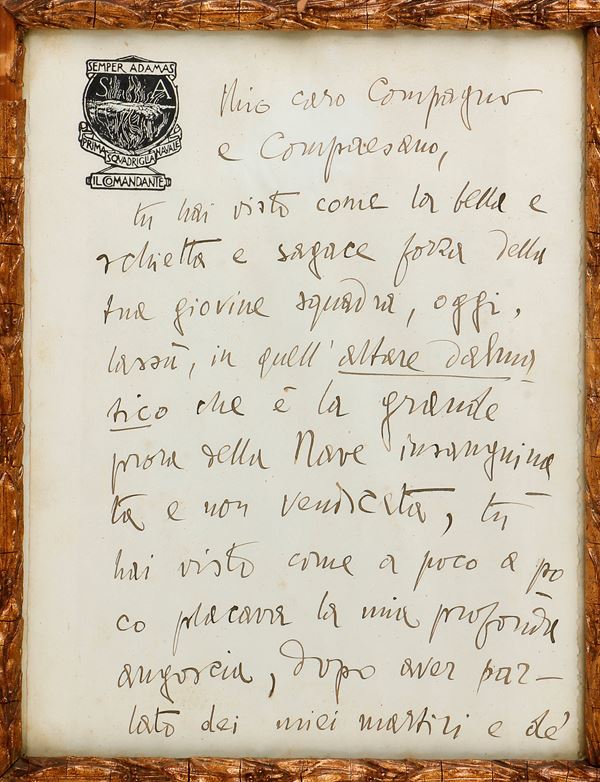 SEMPER ADAMAS
S A
PRIMA SQUADRIGLIA NAVALE
IL COMANDANTE
Mio caro Compagno
e Compaesano,
tu hai visto come la bella e
schietta e sagace forza della
tua giovine squadra, oggi,
lassù, in quell' altare dalma
tico che è la grande
prora della Nave insanguina
ta e non vendicata, tu
hai visto come a poco a po
co placava la mia profonda
angoscia, dopo aver par-
lato dei miei martiri e de'